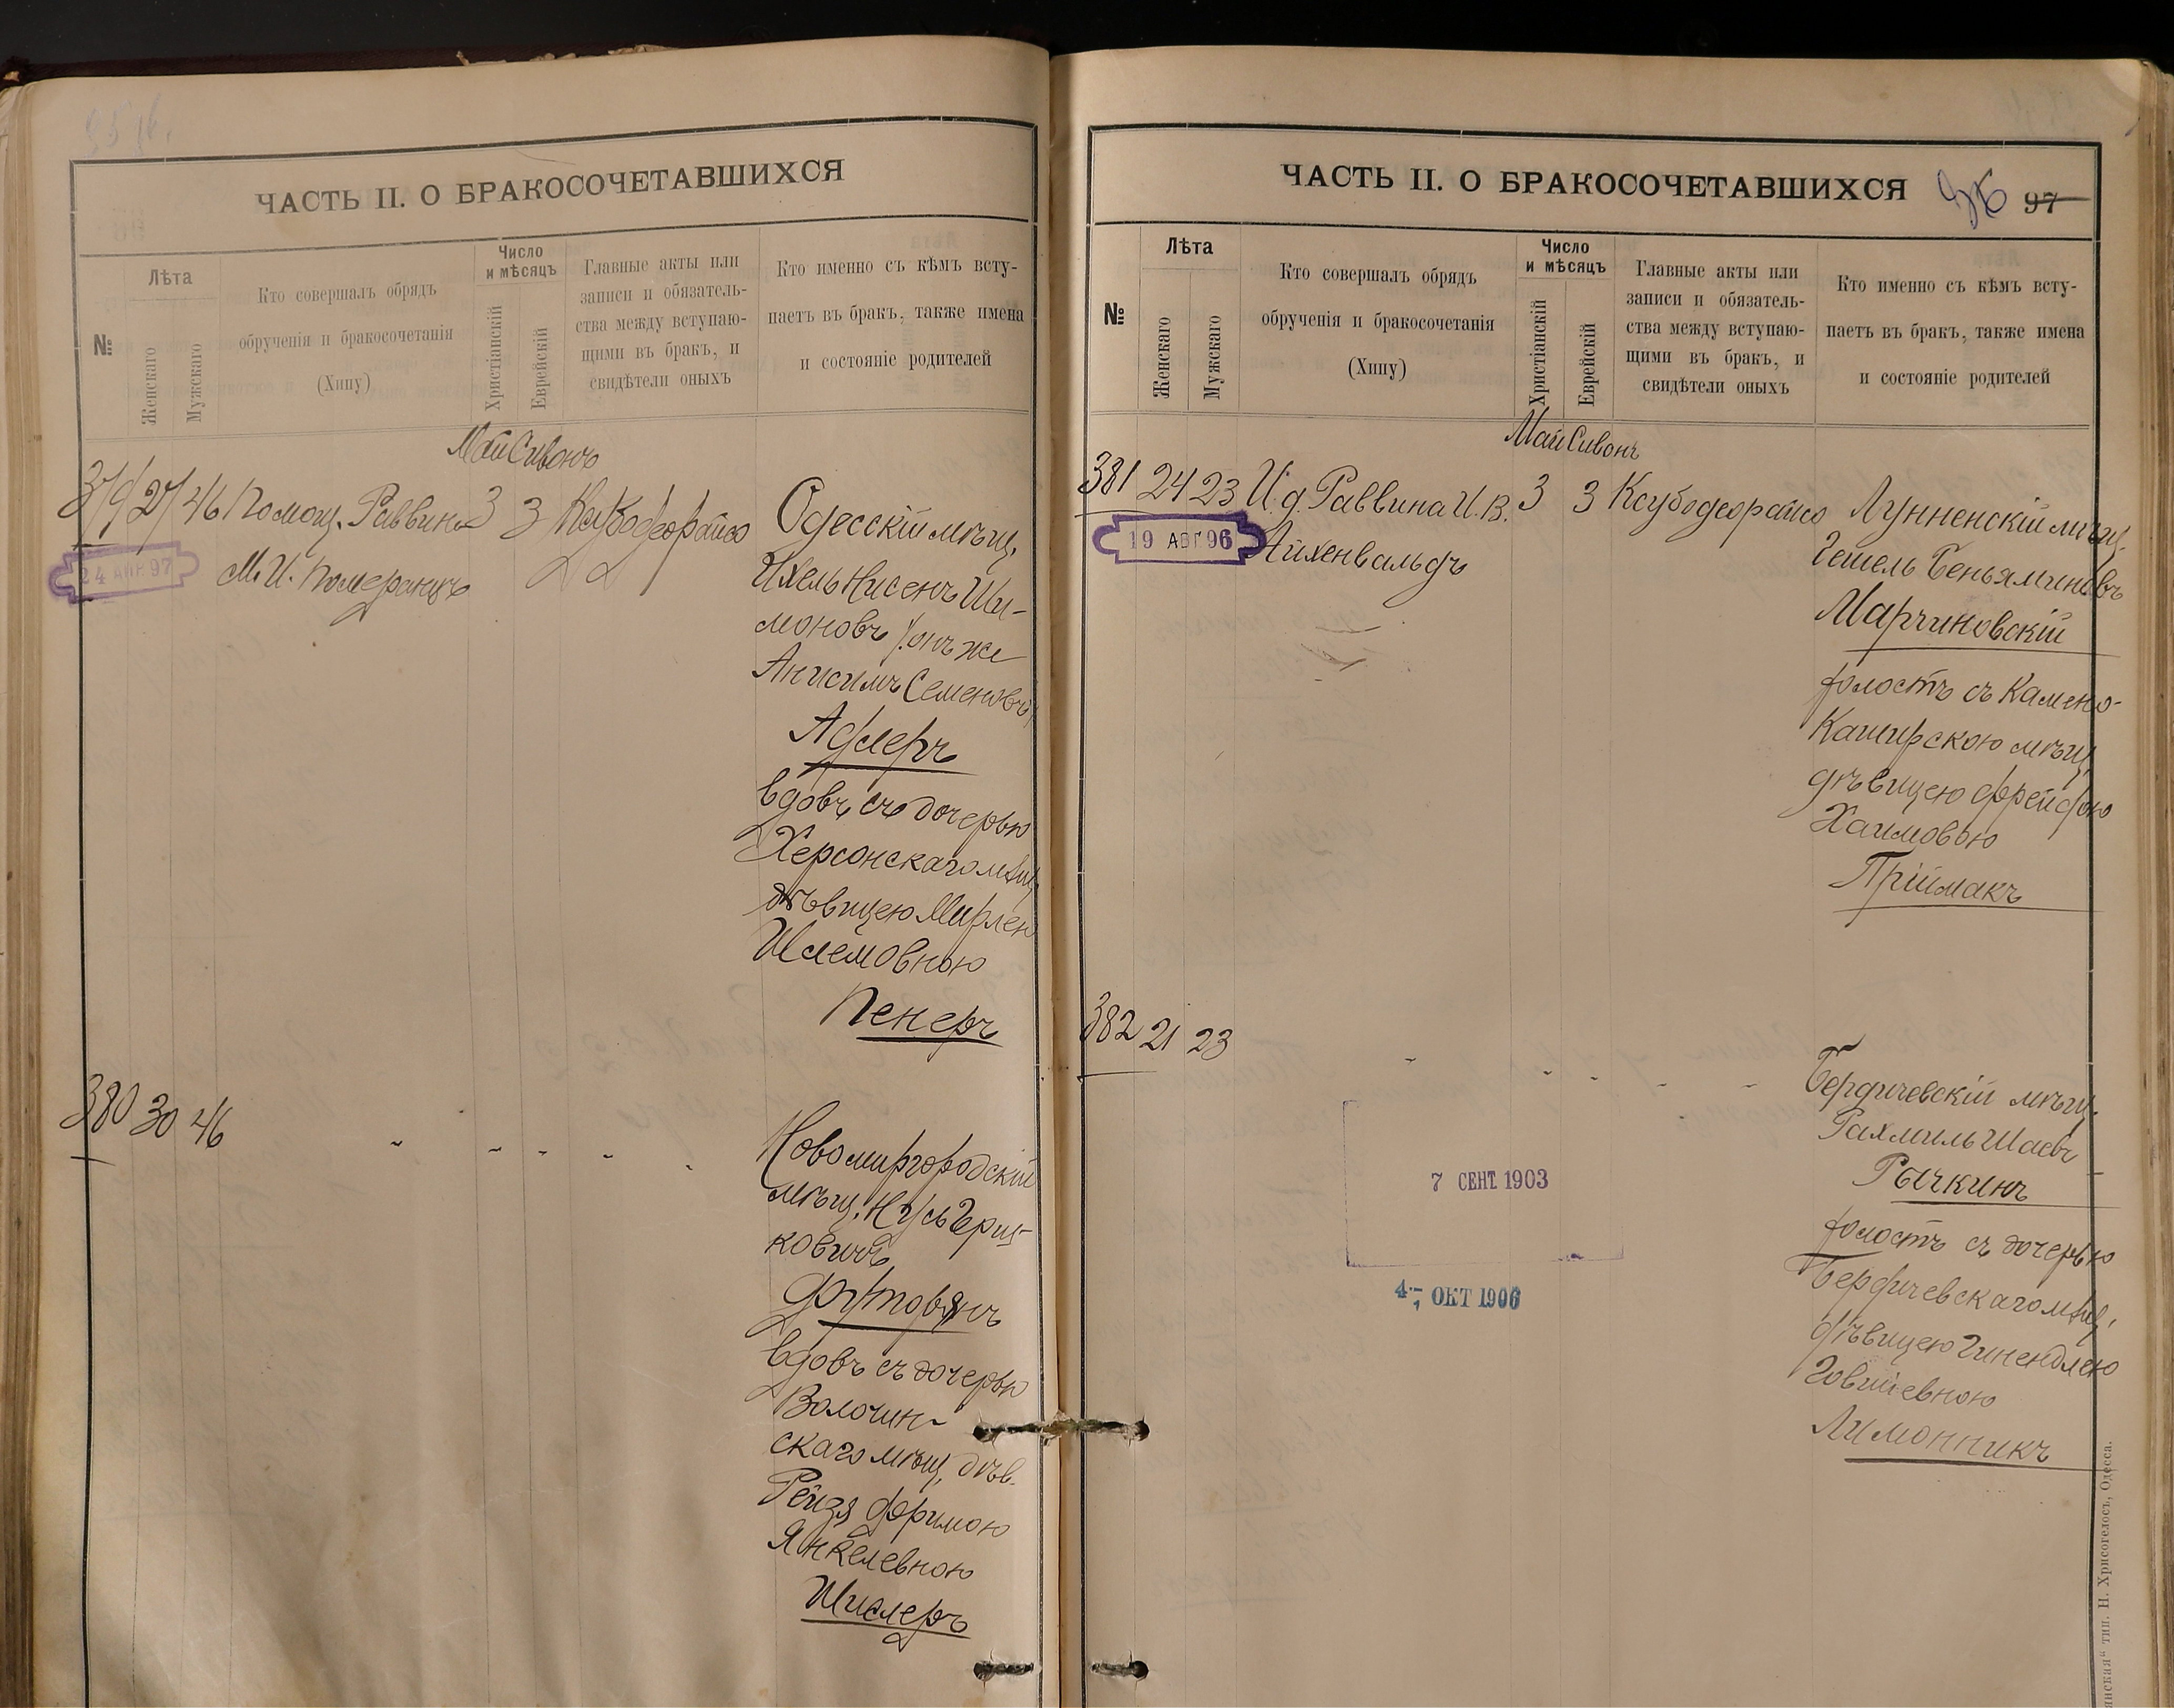 ЧАСТЬ II. О БРАКОСОЧЕТАВШИХСЯ
№
Лѣта
Женскаго
Мужскаго
Кто совершалъ обрядъ
обрученія и бракосочетанія
(Хипу)
Число
и мѣсяцъ
Христіанскій
Еврейскій
Главные акты или
записи и обязатель-
ства между вступаю-
щими въ бракъ, и
свидѣтели оныхъ
Кто именно съ кѣмъ всту-
паетъ въ бракъ, также имена
и состояніе родителей
Май Сивонъ
379 27 46 Помощ. Раввина 3 3 Ксубодеорайсо
24 АПР 97
М. И. Померанцъ
Одесскій мѣщ.
Ихель Нисенъ Ши-
моновъ /онъ же
Анисимъ Семеновъ/
Адлеръ
вдовъ съ дочерью
Херсонскаго мѣщ.
дѣвицею Мирлею
Шлемовною
Пенеръ
380 30 46 " " " " "
Новомиргородскій
мѣщ. Нусь Герш-
ковичъ
вдовъ съ дочерью
Волочин-
скаго мѣщ. дѣв.
Рейзя Фримою
Янкелевною
Шислеръ
ЧАСТЬ II. О БРАКОСОЧЕТАВШИХСЯ 96 97
№
Лѣта
Женскаго
Мужскаго
Кто совершалъ обрядъ
обрученія и бракосочетанія
(Хипу)
Число
и мѣсяцъ
Христіанскій
Еврейскій
Главные акты или
записи и обязатель-
ства между вступаю-
щими въ бракъ, и
свидѣтели оныхъ
Кто именно съ кѣмъ всту-
паетъ въ бракъ, также имена
и состояніе родителей
Май Сивонъ
381 24 23 И. д. Раввина И. В. 3 3 Ксубодеорайсо
19 АВГ 96
Айхенвальдъ
Лунненскій мѣщ.
Гешель Беньяминовъ
Марчиновскій
холостъ съ Камено-
Каширскою мѣщ.
дѣвицею Фрейдою
Хаимовою
Пріймакъ
382 21 23 " " " " "
7 СЕНТ. 1903
4- ОКТ 1906
Бердичевскій мѣщ.
Рахмиль Шаевъ
Рычкинъ
холостъ съ дочерью
Бердичевскаго мѣщ.
дѣвицею Гинендлею
Говшіевною
Лимонникъ
тип. Н. Хрисогелосъ, Одесса.